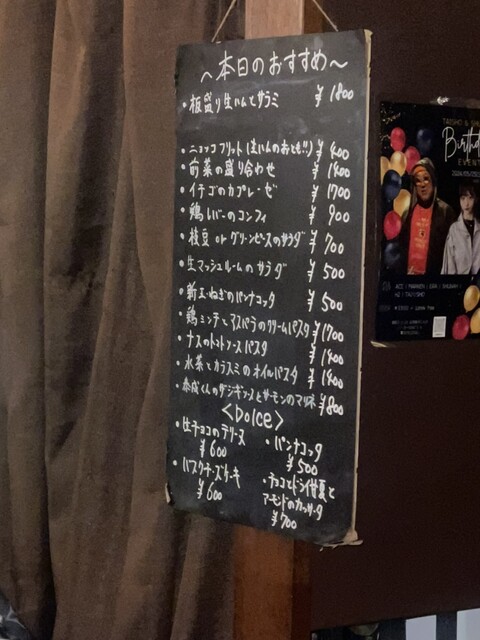 ～本日のおすすめ～
・板盛り生ハムとサラミ ¥1800
・ニョッコフリット(生ハムのおとも!!) ¥400
・前菜の盛り合わせ ¥1400
・イチゴのカプレーゼ ¥1700
・鶏レバーのコンフィ ¥900
・枝豆 or グリーンピースのサラダ ¥700
・生マッシュルームのサラダ ¥500
・新玉ねぎのパンナコッタ ¥500
・鶏ミンチとアスパラのクリームパスタ ¥1700
・ナスのトマトソースパスタ ¥1400
・水菜とカラスミのオイルパスタ ¥1400
サーモンのマリネ ¥800
<Dolce>
・生チョコのテリーヌ
¥600
・パンナコッタ
¥500
・バスクチーズケーキ
¥600
・チョコとドライ甘夏と
アーモンドのカッサータ
¥700
Birthd
EVENT